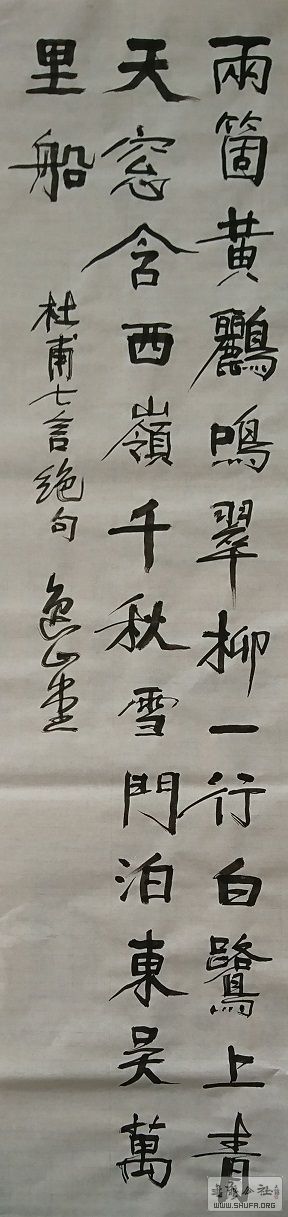 兩箇黃鸝鳴翠柳一行白鷺上青
天窓含西嶺千秋雪門泊東吴萬
里船
杜甫七言绝句
WWW.SHUFA.ORG